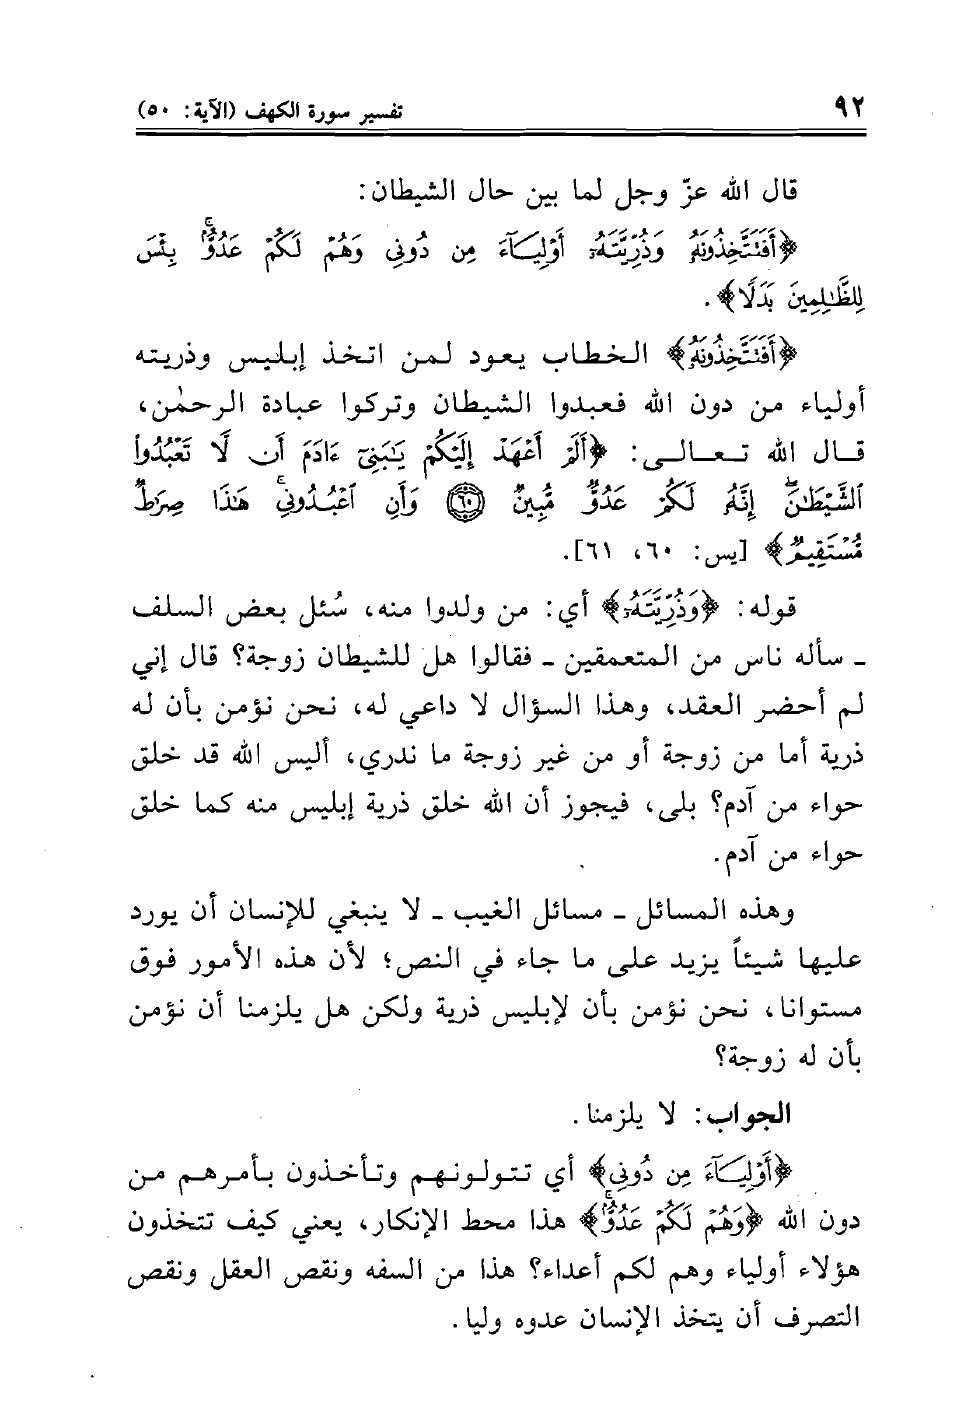 ٩٢
تفسير سورة الكهف (الآية: ٥٠)
قال الله عزّ وجل لما بين حال الشيطان:
﴿أَفَتَتَّخِذُونَهُۥ وَذُرِّيَّتَهُۥٓ أَوْلِيَآءَ مِن دُونِى وَهُمْ لَكُمْ عَدُوٌّۢ ۚ بِئْسَ
لِلظَّٰلِمِينَ بَدَلًا﴾.
﴿أَفَتَتَّخِذُونَهُۥ﴾ الخطاب يعود لمن اتخذ إبليس وذريته
أولياء من دون الله فعبدوا الشيطان وتركوا عبادة الرحمٰن،
قال الله تعالى: ﴿أَلَمْ أَعْهَدْ إِلَيْكُمْ يَٰبَنِىٓ ءَادَمَ أَن لَّا تَعْبُدُوا۟
ٱلشَّيْطَٰنَ ۖ إِنَّهُۥ لَكُمْ عَدُوٌّ مُّبِينٌ ٦٠ وَأَنِ ٱعْبُدُونِى ۚ هَٰذَا صِرَٰطٌ
مُّسْتَقِيمٌ﴾ [يس: ٦٠، ٦١].
قوله: ﴿وَذُرِّيَّتَهُۥٓ﴾ أي: من ولدوا منه، سُئل بعض السلف
ـ سأله ناس من المتعمقين ـ فقالوا هل للشيطان زوجة؟ قال إني
لم أحضر العقد، وهذا السؤال لا داعي له، نحن نؤمن بأن له
ذرية أما من زوجة أو من غير زوجة ما ندري، أليس الله قد خلق
حواء من آدم؟ بلى، فيجوز أن الله خلق ذرية إبليس منه كما خلق
حواء من آدم.
وهذه المسائل ـ مسائل الغيب ـ لا ينبغي للإنسان أن يورد
عليها شيئاً يزيد على ما جاء في النص؛ لأن هذه الأمور فوق
مستوانا، نحن نؤمن بأن لإبليس ذرية ولكن هل يلزمنا أن نؤمن
بأن له زوجة؟
الجواب: لا يلزمنا.
﴿أَوْلِيَآءَ مِن دُونِى﴾ أي تتولونهم وتأخذون بأمرهم من
دون الله ﴿وَهُمْ لَكُمْ عَدُوٌّۢ ۚ﴾ هذا محط الإنكار، يعني كيف تتخذون
هؤلاء أولياء وهم لكم أعداء؟ هذا من السفه ونقص العقل ونقص
التصرف أن يتخذ الإنسان عدوه وليا.